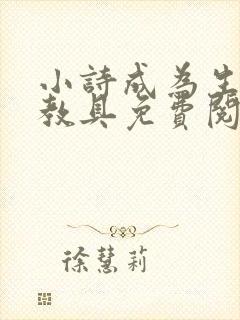 小詩成為生
教具免費閱
徐慧莉